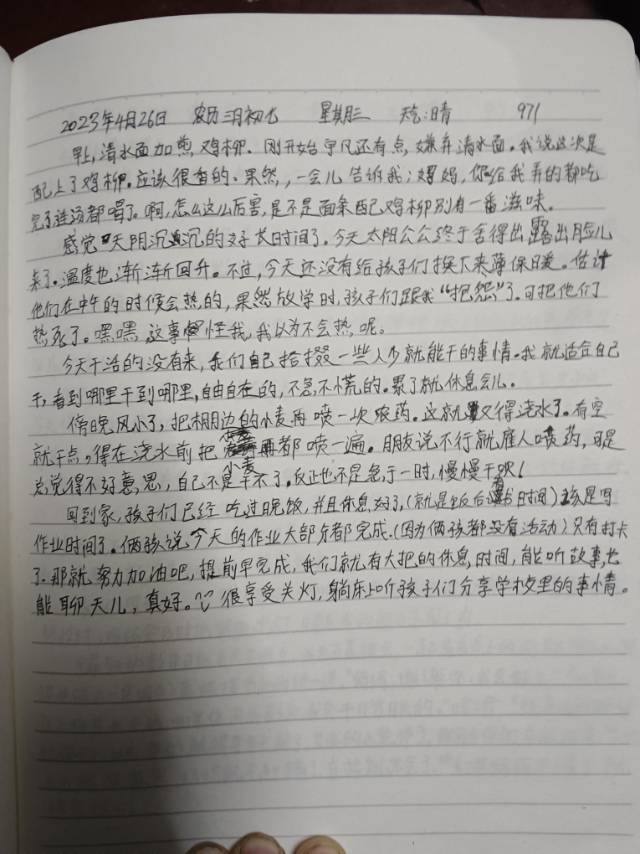 2023年4月26日 农历三月初七 星期三 天气:晴 971
早上,清水面加煎鸡柳.刚开始宇凡还有点,嫌弃清水面。我说这次是
配上了鸡柳.应该很香的.果然,一会儿告诉我;妈妈,你给我弄的都吃
完了连汤都喝了。啊,怎么这么厉害,是不是面条配鸡柳别有一番滋味。
感觉天阴沉沉的好长时间了。今天太阳公公终于舍得出露出脸儿
来了。温度也渐渐回升。不过,今天还没有给孩子们换下来薄保暖。估计
他们在中午的时候会热的,果然放学时,孩子们跟我“抱怨”了.可把他们
热死了。嘿嘿,这事怪我,我以为不会热呢。
今天干活的没有来,我们自己拾掇一些人少就能干的事情.我就适合自己
干,看到哪里干到哪里,自由自在的,不急不慌的.累了就休息会儿。
傍晚风小了,把棚边的小麦再喷一次农药。这就又得浇水了.有空
就干点,得在浇水前把小麦再都喷一遍。朋友说不行就雇人喷药,可是
总觉得不好意思,自己不是干不了。反正也不是急于一时,慢慢干呗!
回到家,孩子们已经吃过晚饭,并且休息好了,(就是饭后读书时间)该是写
作业时间了。俩孩说今天的作业大部分都完成.(因为俩孩都没有活动)只有打卡
了.那就努力加油吧,提前早完成,我们就有大把的休息时间,能听故事,也
能聊天儿,真好。很享受关灯,躺床上听孩子们分享学校里的事情。